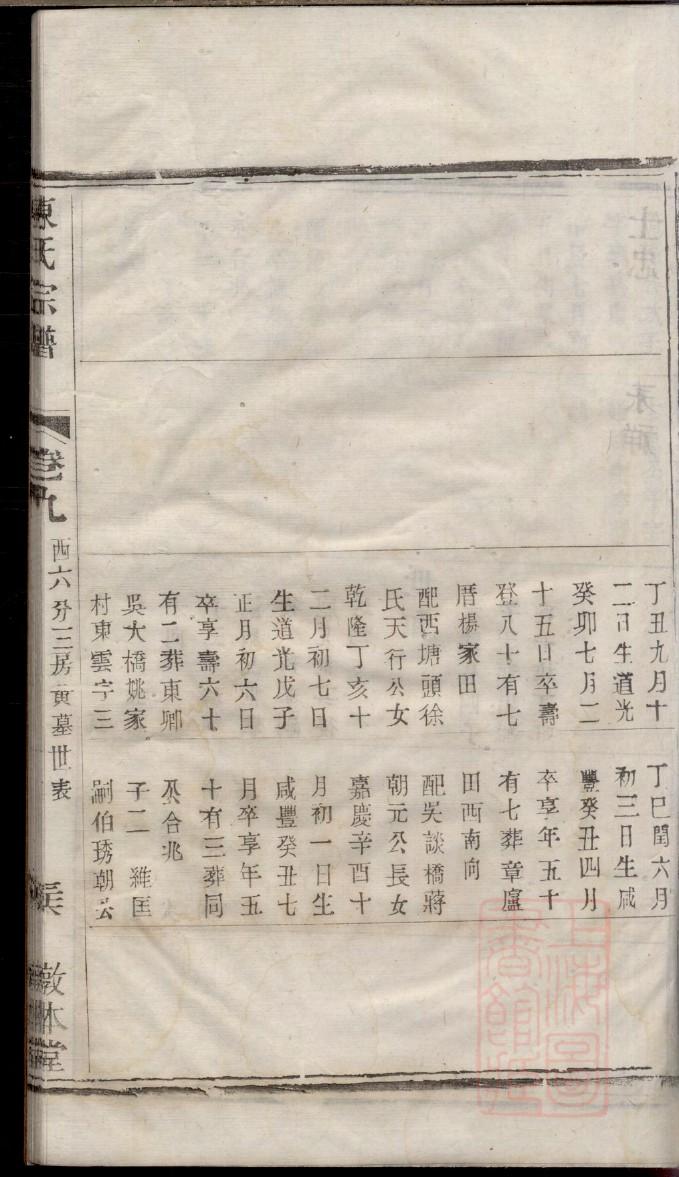 丁丑九月十
二日生道光
癸卯七月二
十五日卒壽
登八十有七
厝楊家田
配西塘頭徐
氏天行公女
乾隆丁亥十
二月初七日
生道光戊子
正月初六日
卒享壽六十
有二葬東鄉
吳大橋姚家
村東雲字三
丁巳閏六月
初三日生咸
豐癸丑四月
卒享年五十
有七葬章廬
田西南向
配吳談橋蔣
朝元公長女
嘉慶辛酉十
月初一日生
咸豐癸丑七
月卒享年五
十有三葬同
公合兆
子二 維匡
嗣伯琇朝云
陳氏宗譜
卷九
西六分三房黃墓世表
敦本堂